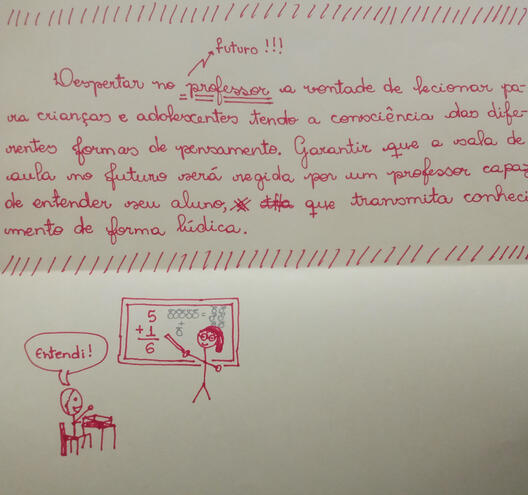 futuro!!!
Despertar no professor a vontade de lecionar pa-
ra crianças e adolescentes tendo a consciência das dife-
rentes formas de pensamento. Garantir que a sala de
aula no futuro será regida por um professor capaz
de entender seu aluno, que transmita conheci
mento de forma lúdica.
5
+1
6
=
+
Entendi!